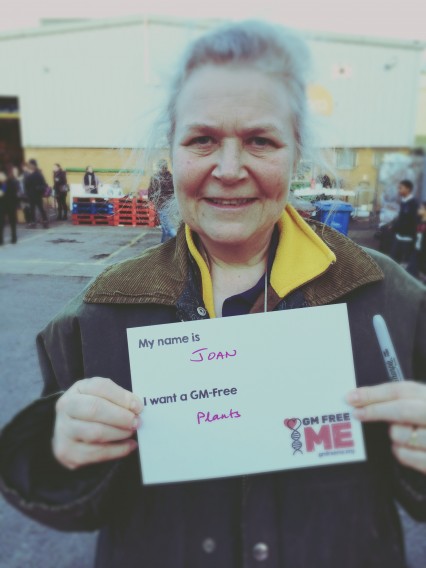 My name is
JOAN
I want a GM-Free
Plants
GM FREE
ME